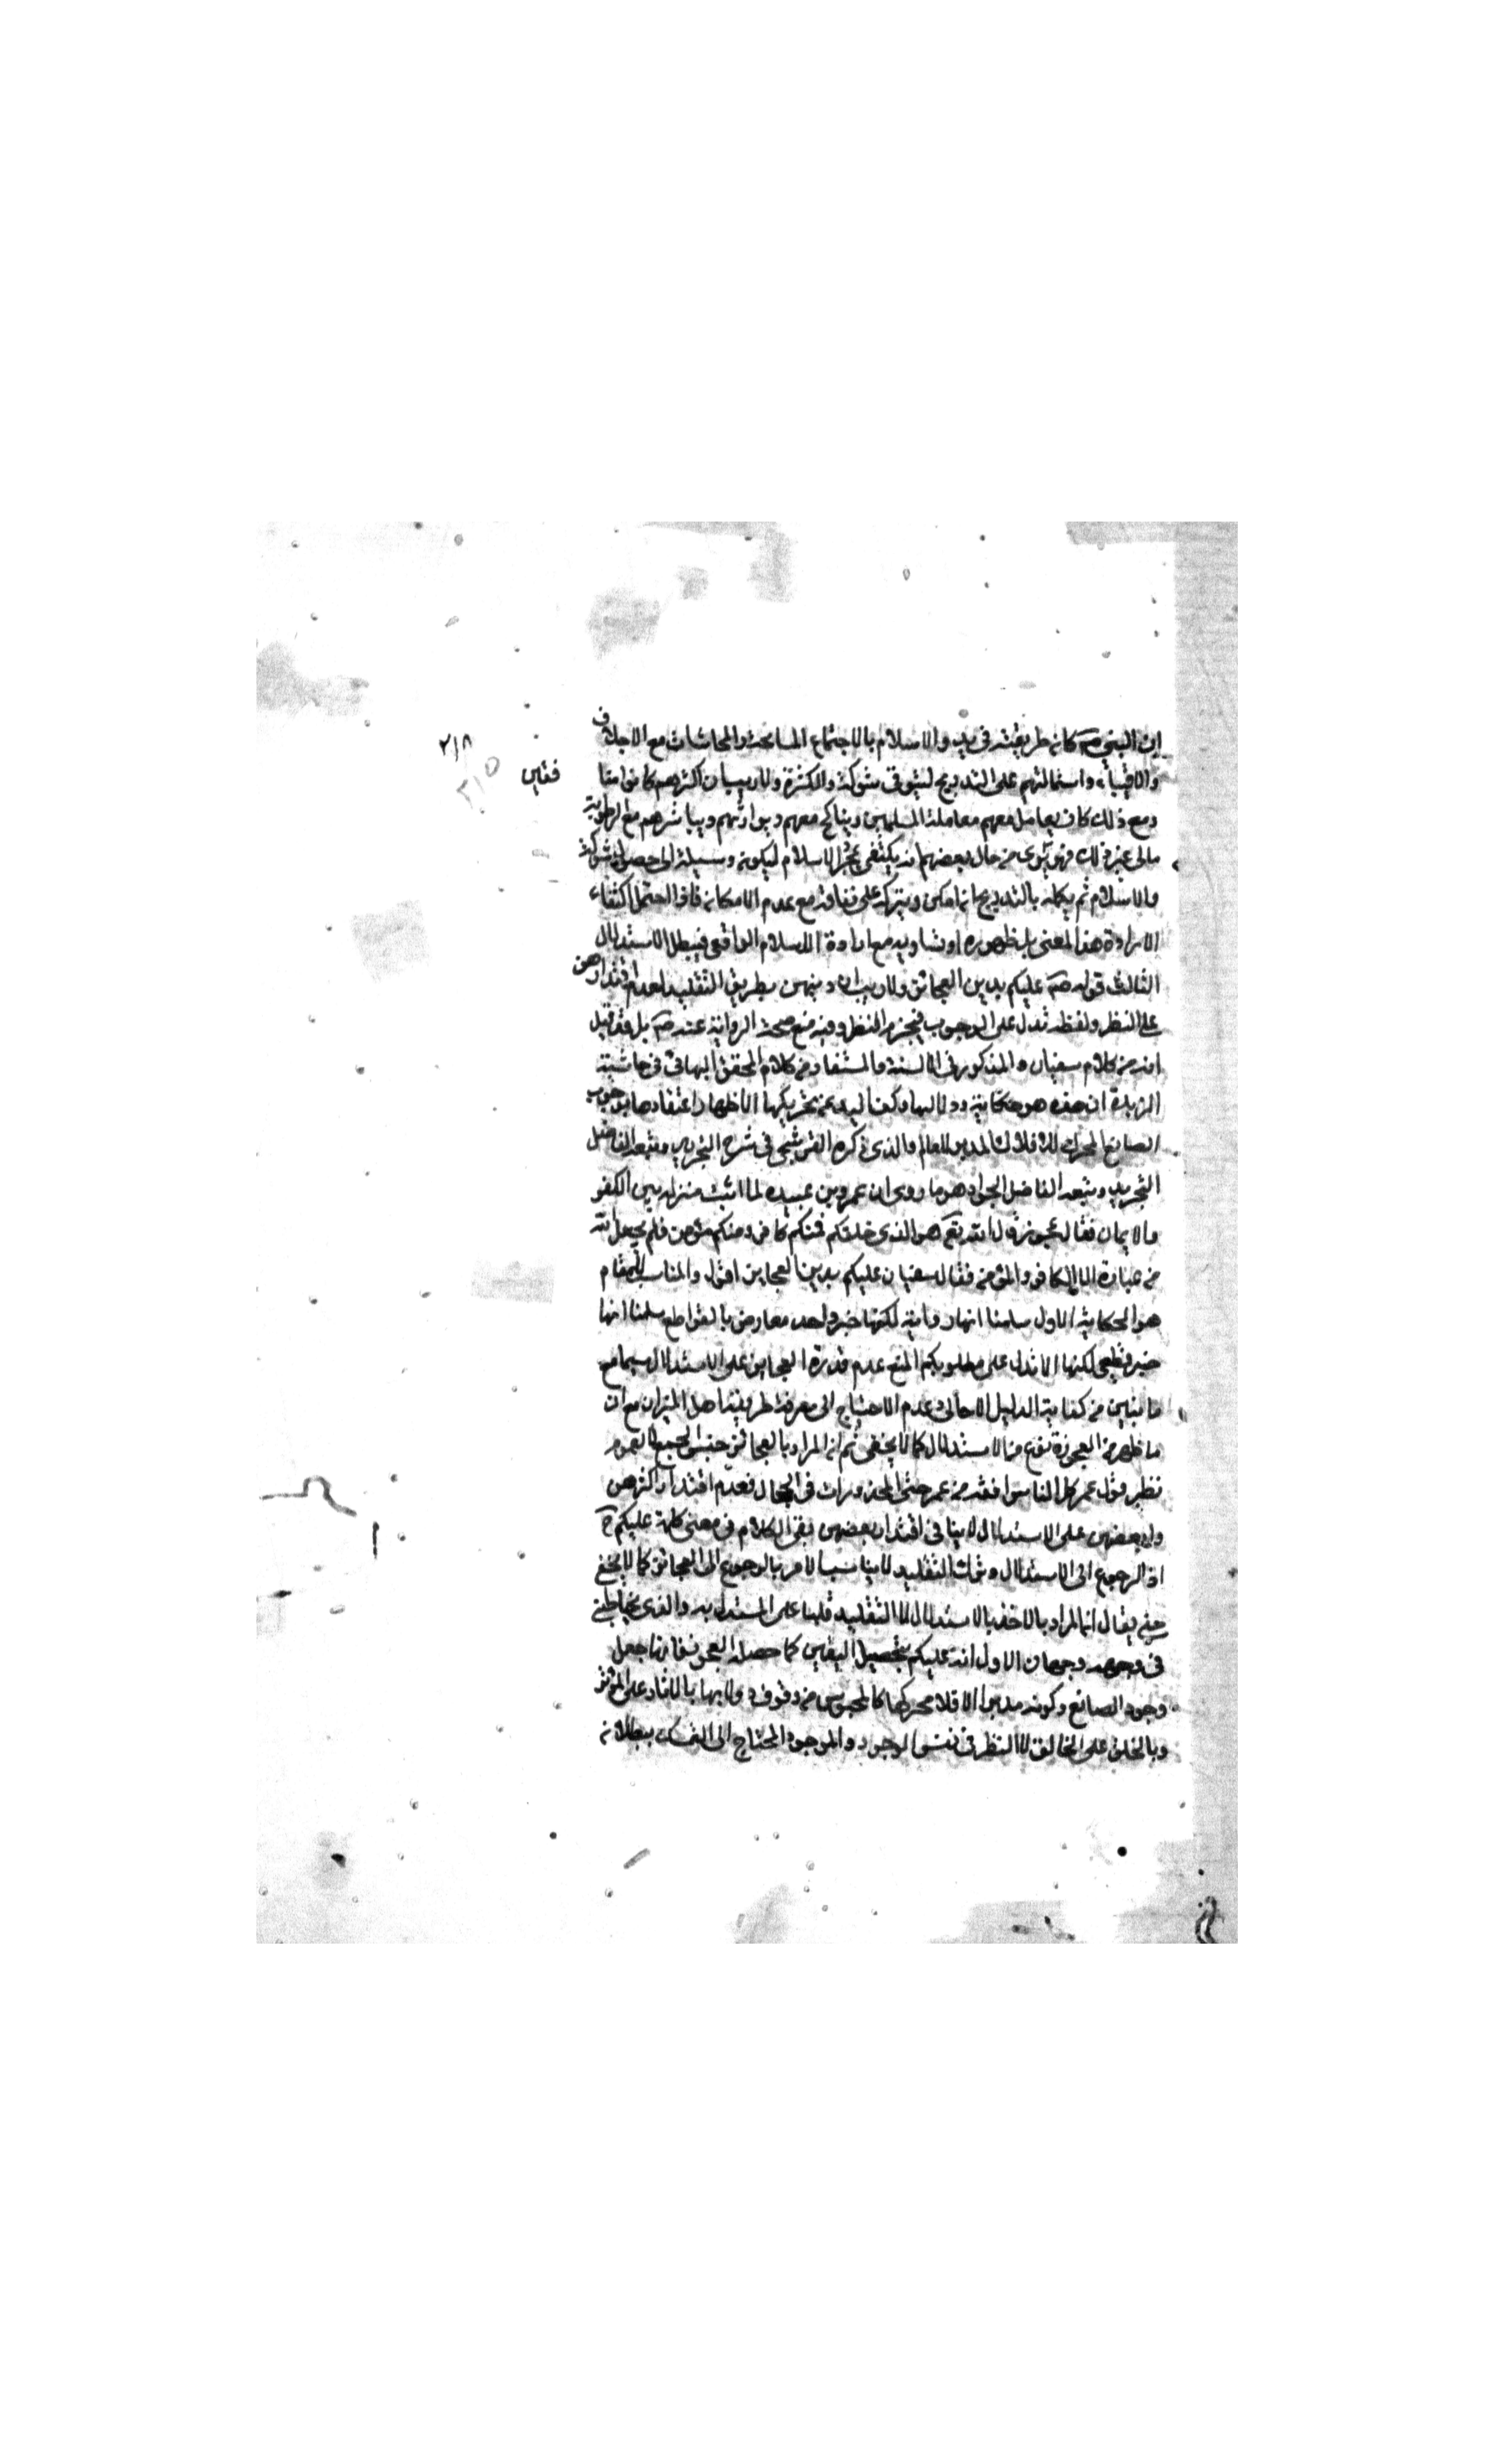 ٢١٨
اين النبي صم كان طريقته في بدو الاسلام بالاجتماع المسامحة والمماشات مع الاجلاف
والاقبياء واستمالتهم على التدريج ليتوفق شوكته والكثرة ولا ريب ان اكثرهم كانوا منا
فقين
ومع ذلك كان يعامل معهم معاملة المسلمين ويناكح معهم ويوارثهم ويباشرهم مع الرطوبة
الى غير ذلك فهو من حال بعضهم انه يكتفى الاسلام ليكون وسيلة الى حصول شوكة
والاسلام ثم يكمله بالتدريج انما مكن ويتركه على نفاقه مع عدم الامكان فاذا احتمل اكتفاء
الارادة هذا المعنى بل ظهوره او تساويه مع ارادة الاسلام الواقعي فيبطل الاستدلال
الثالث قوله صم عليكم بدين العجائز ولا ريب ان دينهن بطريق التقليد لعدم اقتدارهن
على النظر ولفظه تدل على الوجوب فيحرم النظر وفيه منع صحة الرواية عنه صم بل فقد قيل
انه من كلام سفيان والمذكور في الالسنة والمستفاد من كلام المحقق البهائي في حاشية
الزبدة ان هذه هو حكاية دولابها وكف اليد عن تحريكها لاظهار اعتقادها بوجوب
الصانع المحرك للافلاك المدبر للعالم والذي ذكره القوشجي في شرح التجريد وتبعه الفاضل
التجريد وتبعه الفاضل الجواد هو ما روى ان عمرو بن عبيد لما اثبت منزلة بين الكفر
والايمان فقال عجوز قال الله تع هو الذي خلقكم فمنكم كافر ومنكم مؤمن فلم يجعل الله
من عباده الا الكافر والمؤمن فقال سفيان عليكم بدين العجايز اقول والمناسب للمقام
هو الحكاية الاول سلمنا انها رواية لكنها خبر واحد معارض بالقواطع سلمنا انها
خبر قطعي لكنها لا تدل على مطلوبكم لمنع عدم قدرة العجايز على الاستدلال سيما مع
ما تبين من كفاية الدليل الاجمالي وعدم الاحتياج الى معرفة طريقة اهل الميزان مع ان
ما ظهر من العجوزة نوع من الاستدلال كما لا يخفى ثم ان المراد بالعجائز جنس الجمع لا العموم
نظير قول عمر كل الناس افقه من عمر حتى المخدرات في الحجال فعدم اقتدار اكثرهن
او بعضهن على الاستدلال لا ينافي اقتدار بعضهن بقى الكلام في معنى كلمة عليكم ح
اذ الرجوع الى الاستدلال وترك التقليد لا يناسب الامر بالرجوع الى العجائز كما لا يخفى
حتى يقال انما المراد بالاخذ بالاستدلال لا التقليد قلبنا على المستدل به والذي يخاطبني
في وجهه وجهان الاول انه عليكم بتحصيل اليقين كما حصله العجوز فانها جعل
وجود الصانع وكونه مدبر الافلا محركها كالمحسوس من وقوف دولابها بالاثار على المؤثر
وبالخلق على الخالق لا النظر في نفس الوجود والموجود المحتاج الى بطلان